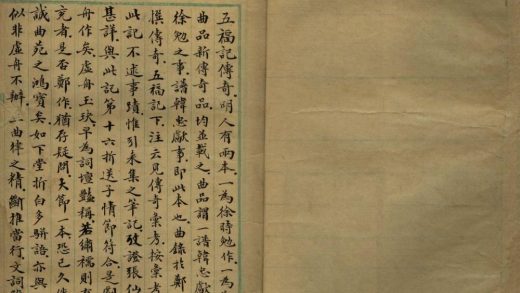 五福記傳奇明人有兩本一為徐時勉作一為
曲品新傳奇品均並載之曲品謂一譜韓忠獻
徐勉之事譜韓忠獻事即此本也曲錄於鄭
撰傳奇五福記下注云見傳奇彙考按彙考
此記不述事蹟惟引未集之筆記攷證張仙
甚詳與此記第十六折送子情節符合是
舟作矣虛舟王玦早為詞壇豔稱若繡襦則
究者是否鄭作猶存疑問大節一本恐已久
誠曲苑之鴻寶矣如下堂折白多駢語亦與
似非虛舟不辦曲律之精斷推當行文詞